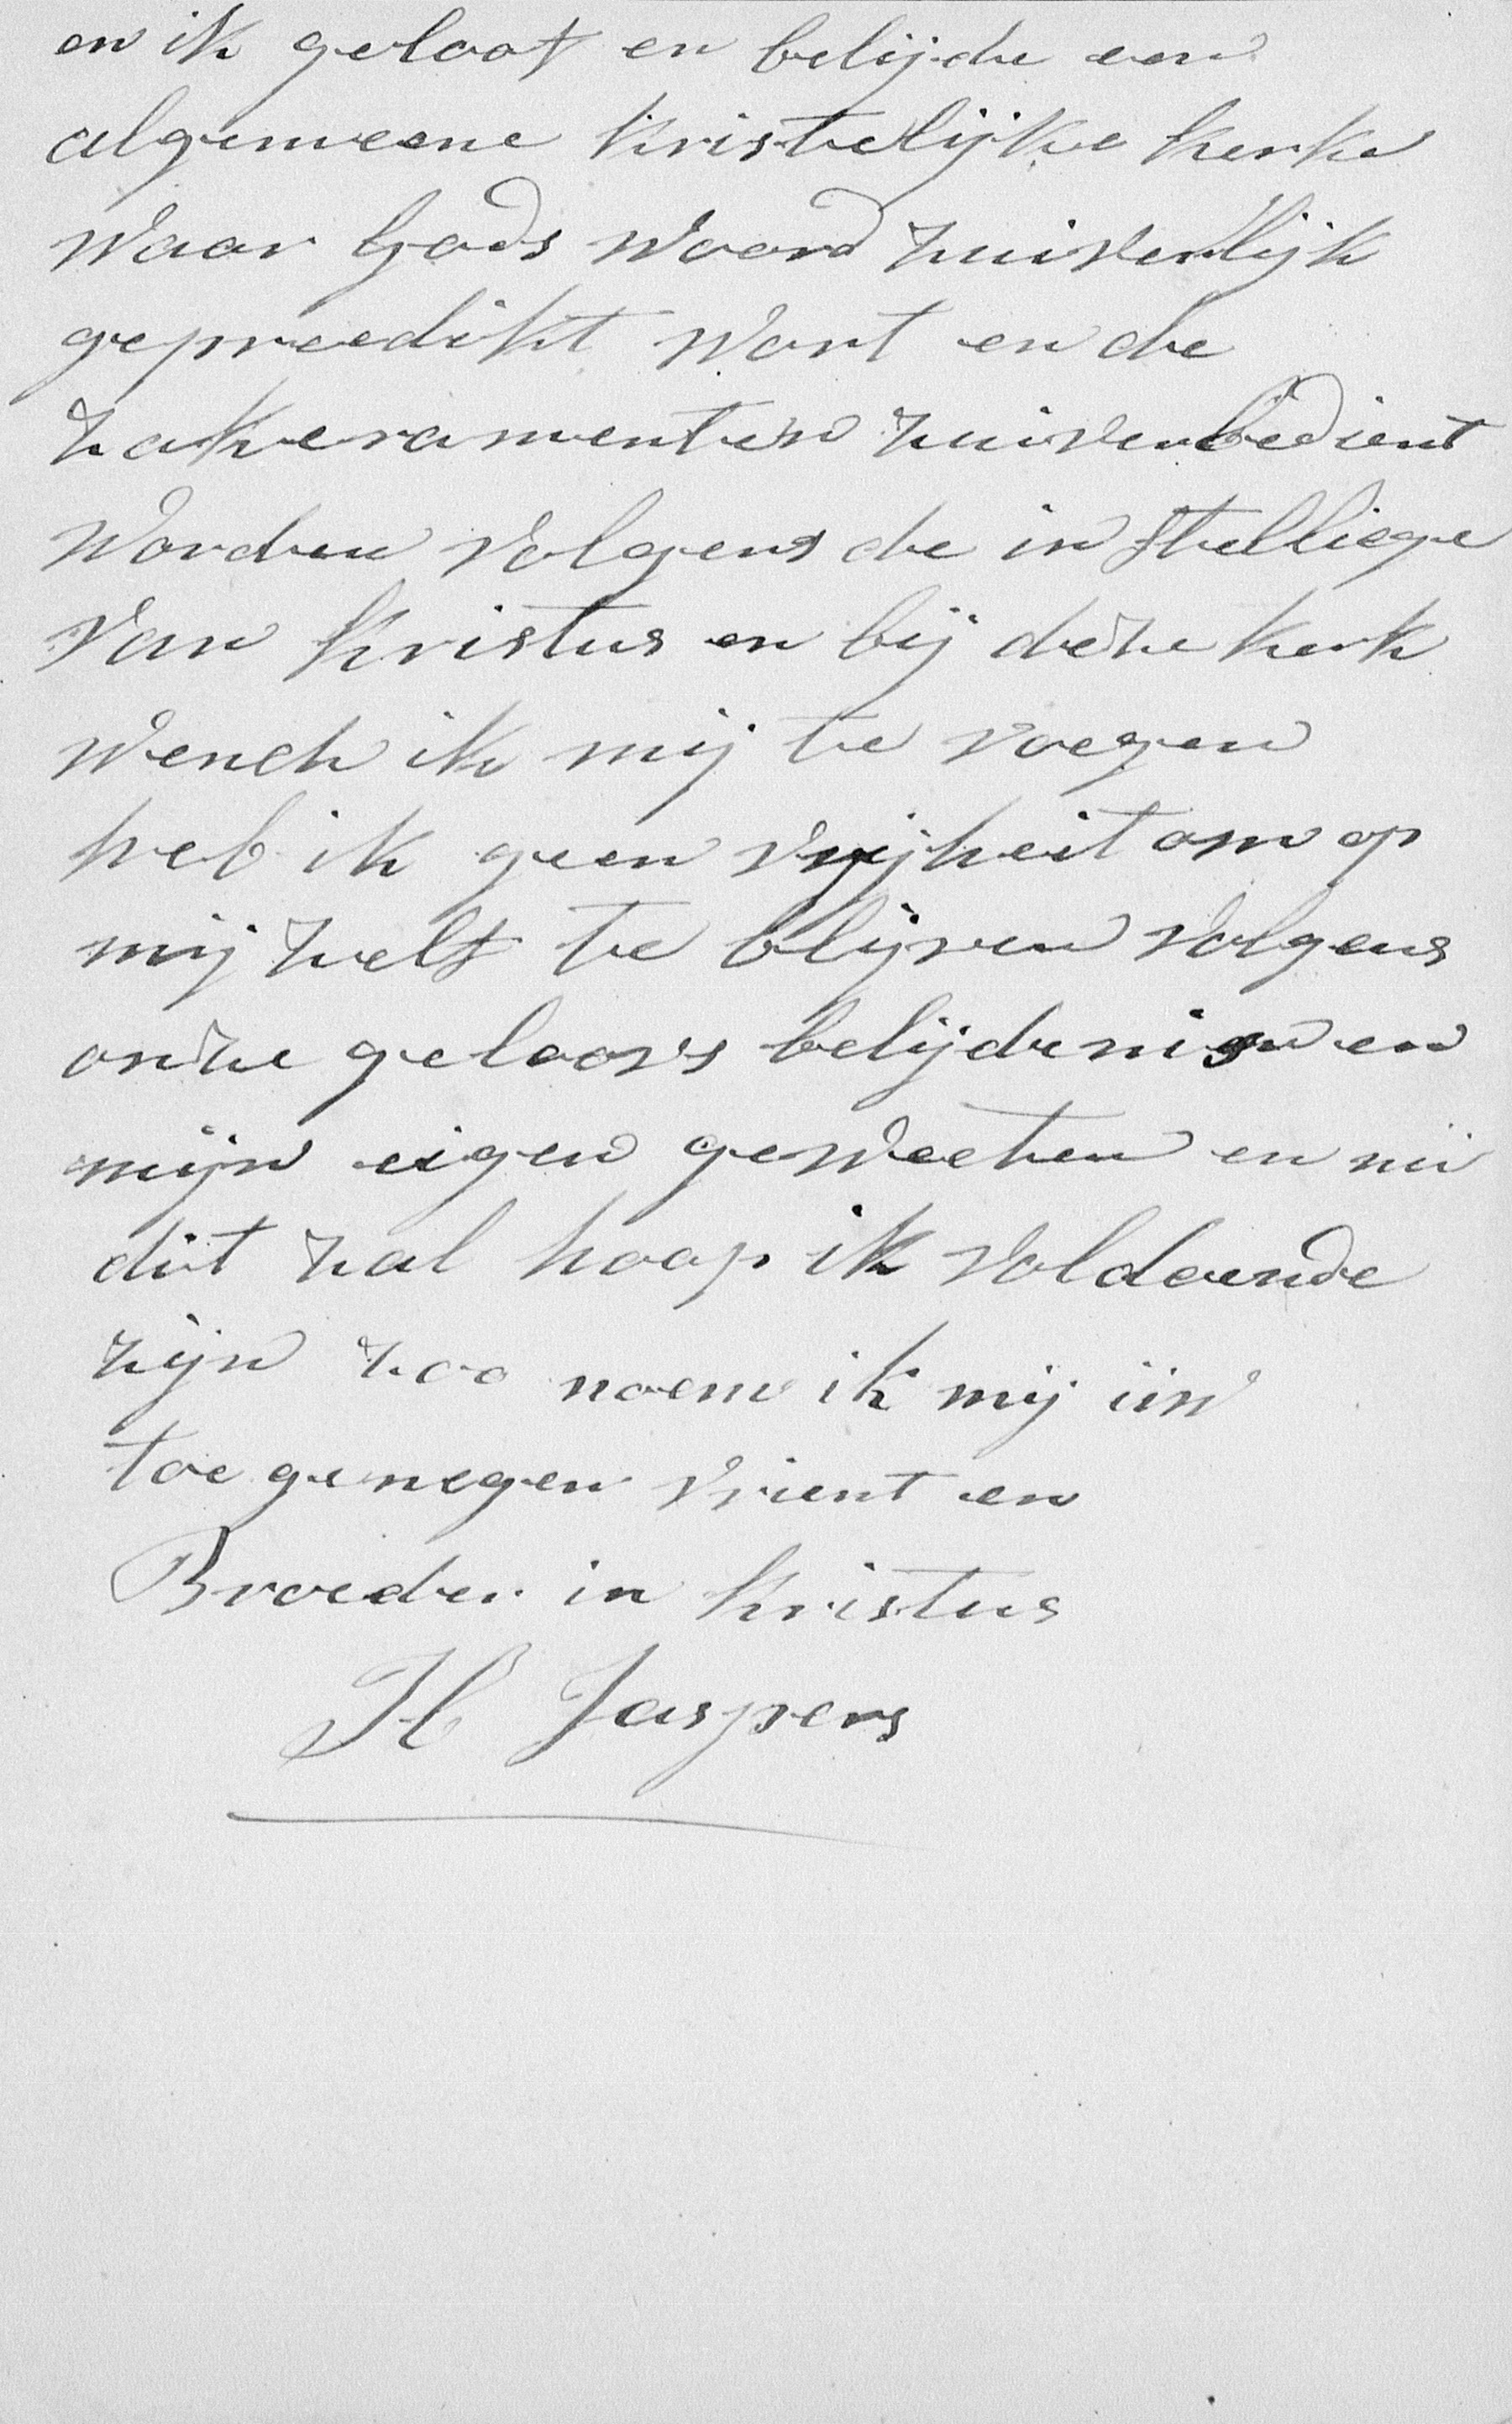 en ik geloof en belijde een
algemeene kristelijke kerke
waar Gods woord zuiverlijk
gepreedikt wort en de
zakeramenten zuiver bedient
worden volgens de in stelliege
van kristus en bij deze kerk
wench ik mij te voegen
heb ik geen vrijheit om op
mij zelf te blijven volgens
onze geloofs belijdenis en
mijn eigen geweeten en nu
dit zal hoop ik voldoende
zijn zoo noem ik mij uw
toe genegen vrient en
Broeder in kristus
H Jaspers